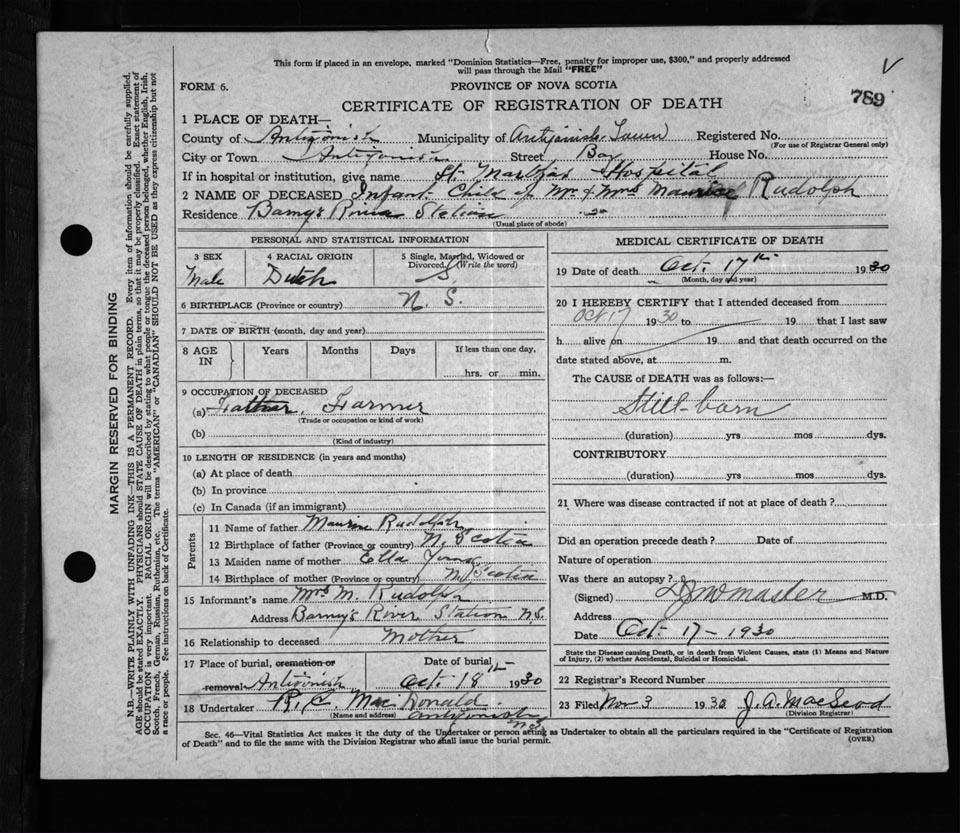 This form if placed in an envelope, marked "Dominion Statistics—Free, penalty for improper use, $300," and properly addressed
will pass through the Mail "FREE"
V
FORM 6.
PROVINCE OF NOVA SCOTIA
789
CERTIFICATE OF REGISTRATION OF DEATH
1 PLACE OF DEATH—
County of Antigonish Municipality of Antigonish Town Registered No.
(For use of Registrar General only)
City or Town Antigonish Street Bay House No.
If in hospital or institution, give name St Marthas Hospital
2 NAME OF DECEASED Infant Child of Mr. & Mrs Maurice Rudolph
Residence Barny's River Station
(Usual place of abode)
PERSONAL AND STATISTICAL INFORMATION
3 SEX 4 RACIAL ORIGIN 5 Single, Married, Widowed or Divorced. (Write the word)
Male Dutch S
6 BIRTHPLACE (Province or country) N. S.
7 DATE OF BIRTH (month, day and year)
8 AGE IN Years Months Days If less than one day,
hrs. or min.
9 OCCUPATION OF DECEASED
(a) Father, Farmer
(Trade or occupation or kind of work)
(b)
(Kind of industry)
10 LENGTH OF RESIDENCE (in years and months)
(a) At place of death
(b) In province
(c) In Canada (if an immigrant)
Parents
11 Name of father Maurice Rudolph
12 Birthplace of father (Province or country) N. Scotia
13 Maiden name of mother Etta
14 Birthplace of mother (Province or country) N. Scotia
15 Informant's name Mrs M. Rudolph
Address Barny's River Station N.S.
16 Relationship to deceased Mother
17 Place of burial, cremation or removal Antigonish Date of burial Oct. 18th 1930
18 Undertaker R. C. MacDonald
(Name and address) Antigonish N.S.
MEDICAL CERTIFICATE OF DEATH
19 Date of death Oct. 17th 1930
(Month, day and year)
20 I HEREBY CERTIFY that I attended deceased from
Oct 17 1930 to 19 that I last saw
h alive on 19 and that death occurred on the
date stated above, at m.
The CAUSE of DEATH was as follows:—
Still-born
(duration) yrs mos dys.
CONTRIBUTORY
(duration) yrs mos dys.
21 Where was disease contracted if not at place of death?
Did an operation precede death? Date of
Nature of operation
Was there an autopsy?
(Signed) M.D.
Address
Date Oct-17-1930
State the Disease causing Death, or in death from Violent Causes, state (1) Means and Nature
of Injury, (2) whether Accidental, Suicidal or Homicidal.
22 Registrar's Record Number
23 Filed Nov 3 1930 J. A. MacLeod
(Division Registrar)
Sec. 46—Vital Statistics Act makes it the duty of the Undertaker or person acting as Undertaker to obtain all the particulars required in the "Certificate of Registration
of Death" and to file the same with the Division Registrar who shall issue the burial permit. (OVER)
MARGIN RESERVED FOR BINDING
N.B.—WRITE PLAINLY WITH UNFADING INK—THIS IS A PERMANENT RECORD. Every item of information should be carefully supplied.
AGE should be stated EXACTLY. PHYSICIANS should STATE CAUSE OF DEATH in plain terms, so that it may be properly classified. Exact statement of
OCCUPATION is very important. RACIAL ORIGIN will be described by stating to what people or tongue the deceased person belonged, whether English, Irish,
Scotch, French, German, Russian, Ruthenian, etc. The terms "AMERICAN" or "CANADIAN" SHOULD NOT BE USED as they express citizenship but not
a race or people. See instructions on back of Certificate.